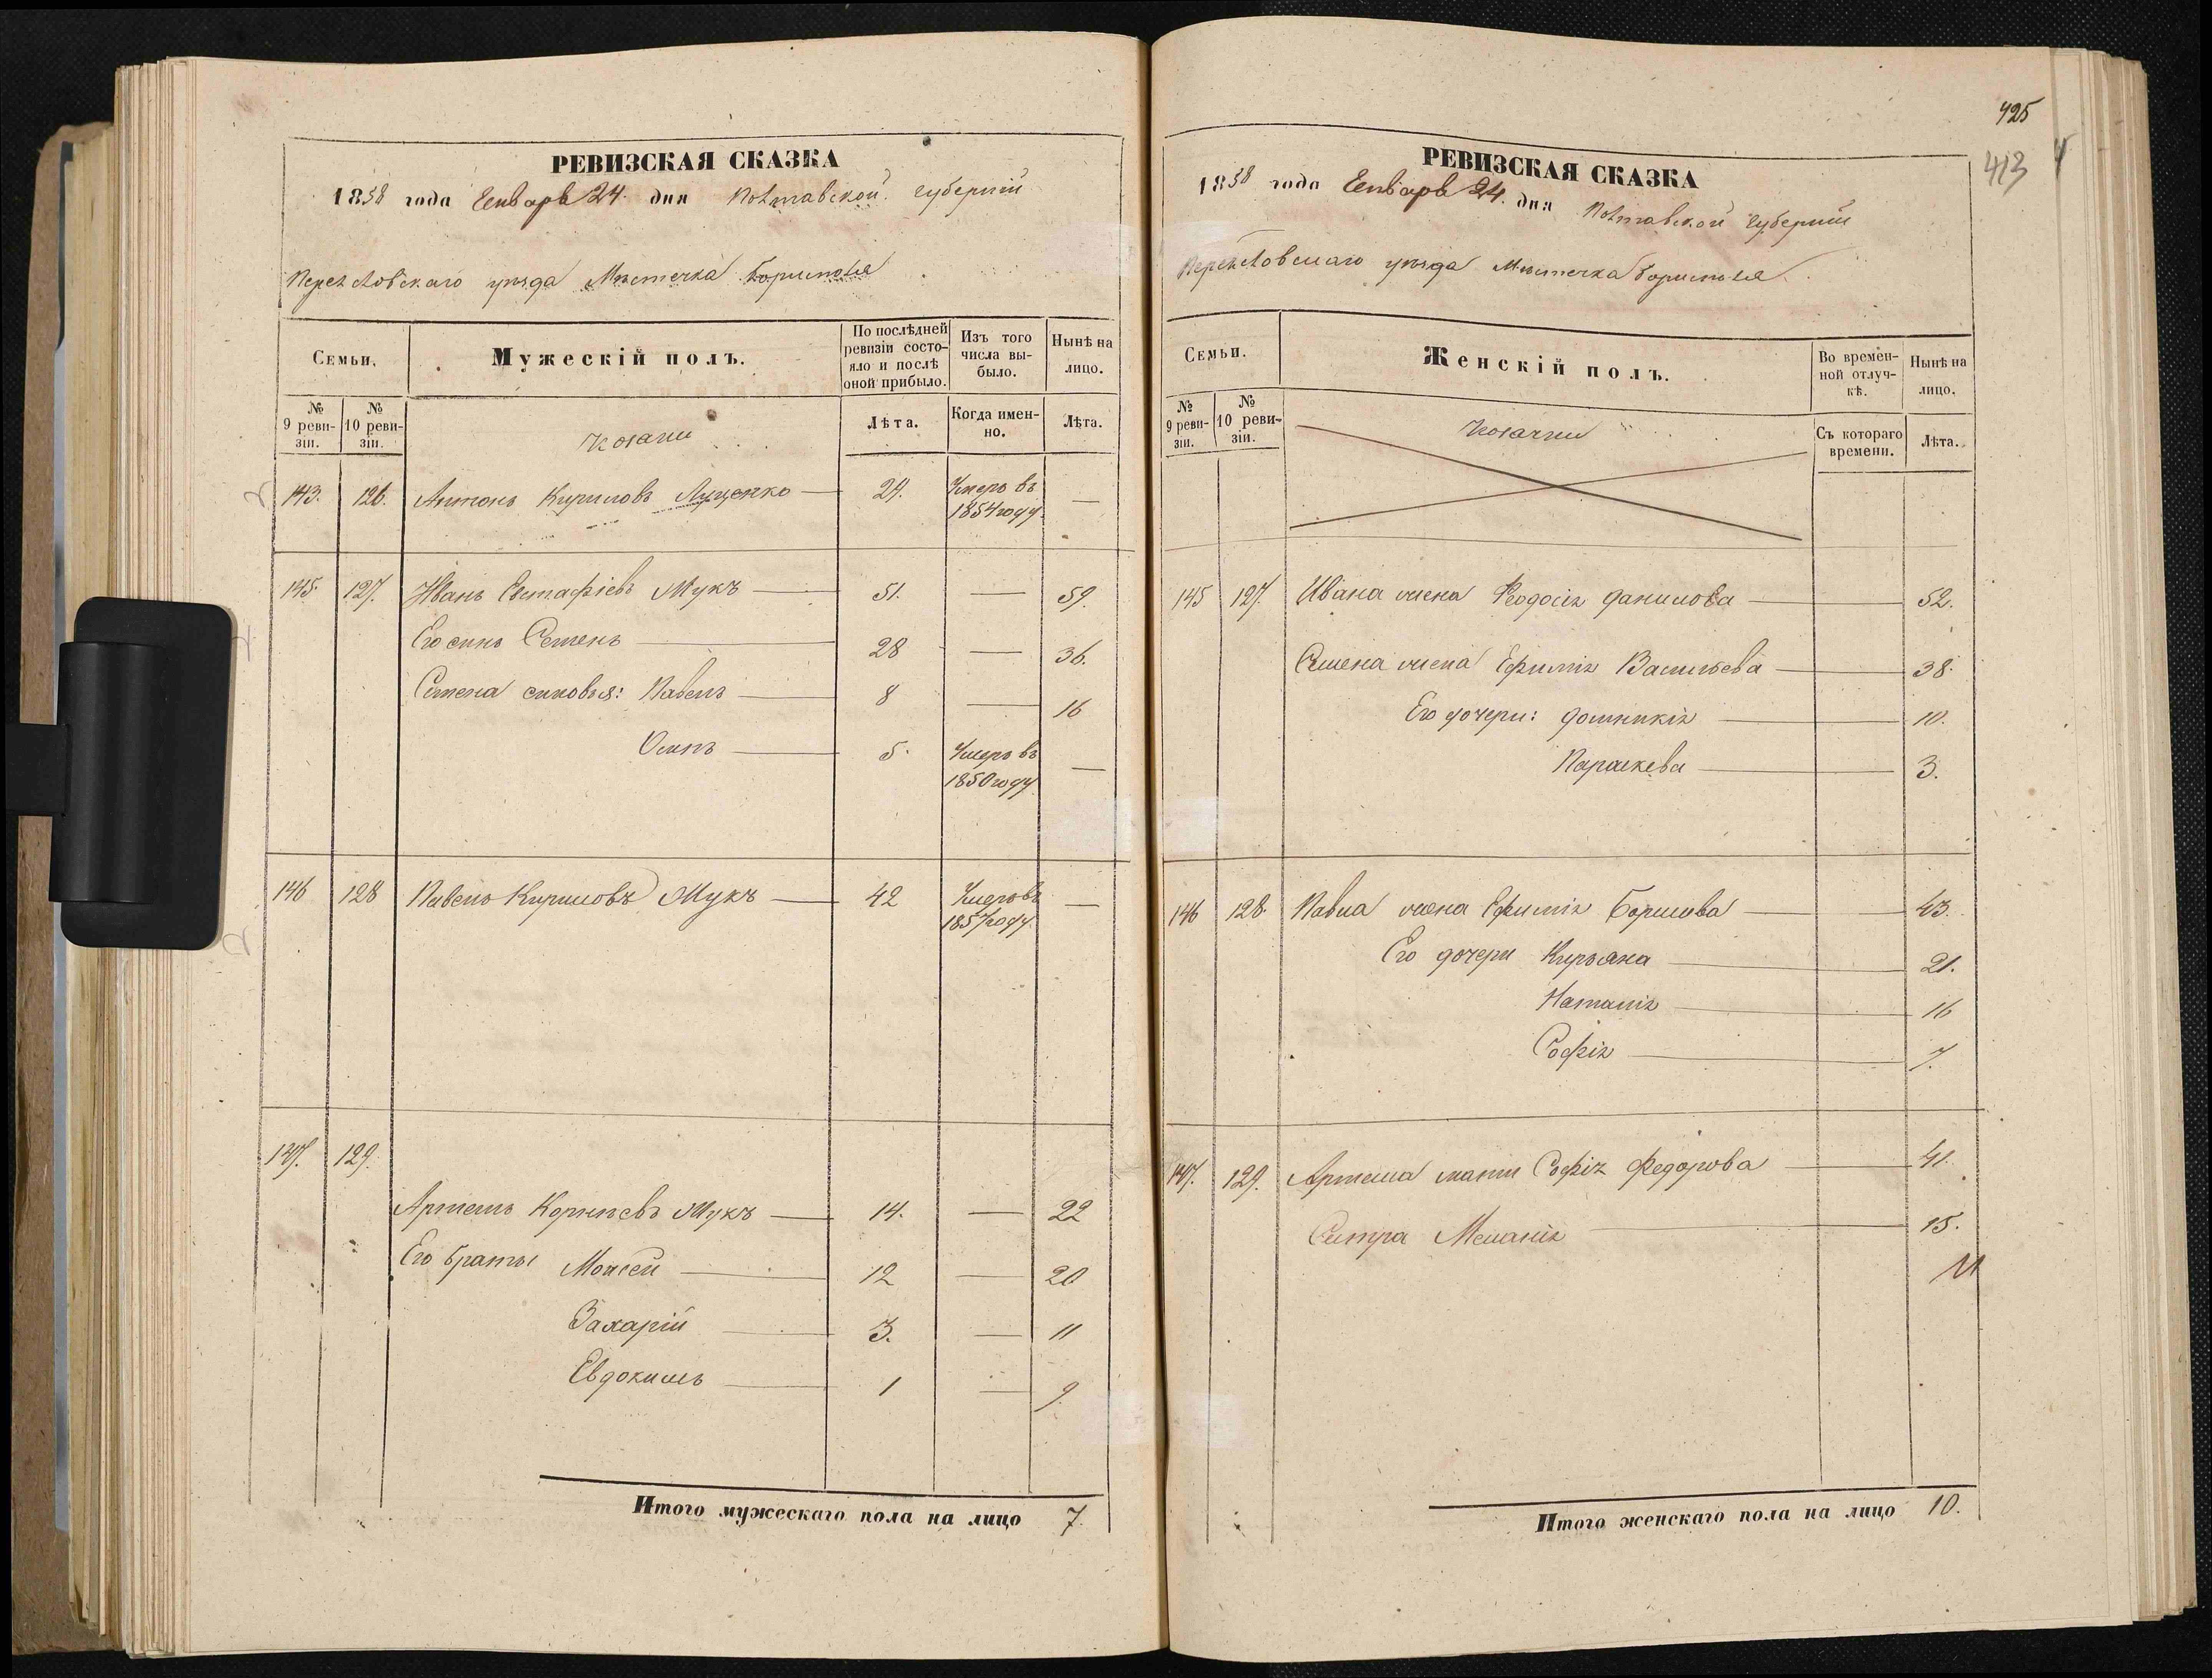 РЕВИЗСКАЯ СКАЗКА
1858 года Генваря 24. дня Полтавской губерніи
Переяловскаго уѣзда Мѣстечка Борисполя
Семьи.
Мужескій полъ.
По послѣдней ревизіи состояло и послѣ оной прибыло.
Изъ того числа выбыло.
Нынѣ на лицо.
№ 9 ревизіи.
№ 10 ревизіи.
Козаки
Лѣта.
Когда именно.
Лѣта.
143. 126. Антонъ Кириловъ Луценко — 24. Умеръ въ 1854 году. —
145. 127. Иванъ Евстафіевъ Мукъ — 51. — 59.
Его сынъ Семенъ — 28 — 36.
Семена сыновья: Павелъ — 8 — 16
Осипъ — 5. Умеръ въ 1850 году —
146 128 Павелъ Кириловъ Мукъ — 42 Умеръ въ 1857 году. —
147. 129.
Артемъ Корнѣевъ Мукъ — 14. — 22
Его браты Моисей — 12 — 20
Захарій — 3. — 11
Евдокимъ — 1 — 9
Итого мужескаго пола на лицо 7.
425
413
РЕВИЗСКАЯ СКАЗКА
1858 года Генваря 24. дня Полтавской Губерніи
Переяловскаго уѣзда Мѣстечка Борисполя
Семьи.
Женскій полъ.
Во временной отлучкѣ.
Нынѣ на лицо.
№ 9 ревизіи.
№ 10 ревизіи.
Козачки
Съ котораго времени.
Лѣта.
145 127. Ивана жена Феодосія Данилова — 52.
Семена жена Ефимія Васильева — 38.
Его дочери: Домникія — 10.
Параскева — 3.
146 128. Павла жена Ефимія Борисова — 43.
Его дочери Кирьяна — 21.
Наталія — 16
Софія — 7.
147. 129. Артема мати Софія Федорова — 41.
Сестра Меланія — 15.
Итого женскаго пола на лицо 10.